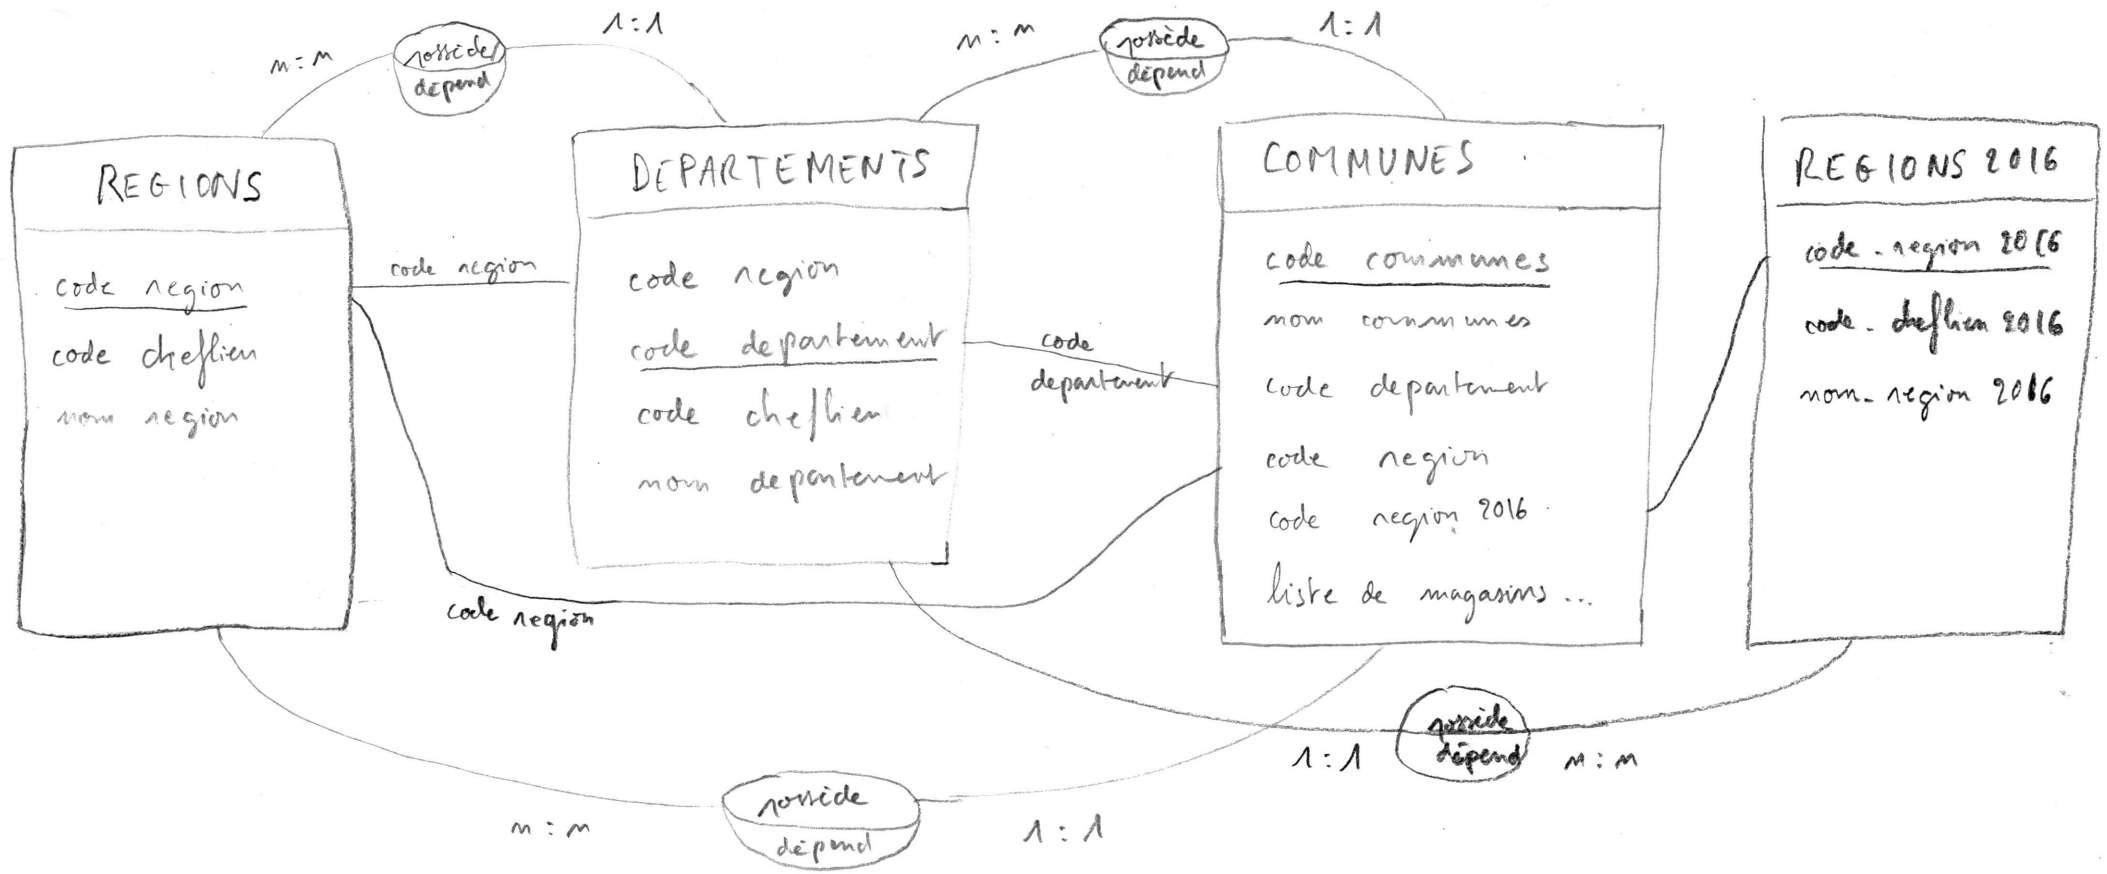 n : n
possède
dépend
1 : 1
n : n
possède
dépend
1 : 1
REGIONS
code region
code cheflieu
nom region
code region
DEPARTEMENTS
code region
code departement
code cheflieu
nom departement
code
departement
COMMUNES
code communes
nom communes
code departement
code region
code region 2016
liste de magasins ...
REGIONS 2016
code_region 2016
code_cheflieu 2016
nom_region 2016
code region
n : n
possède
dépend
1 : 1
1 : 1
possède
dépend
n : n